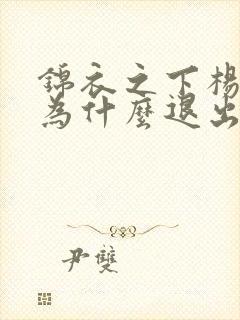 錦衣之下楊
為什麼退出
尹雙